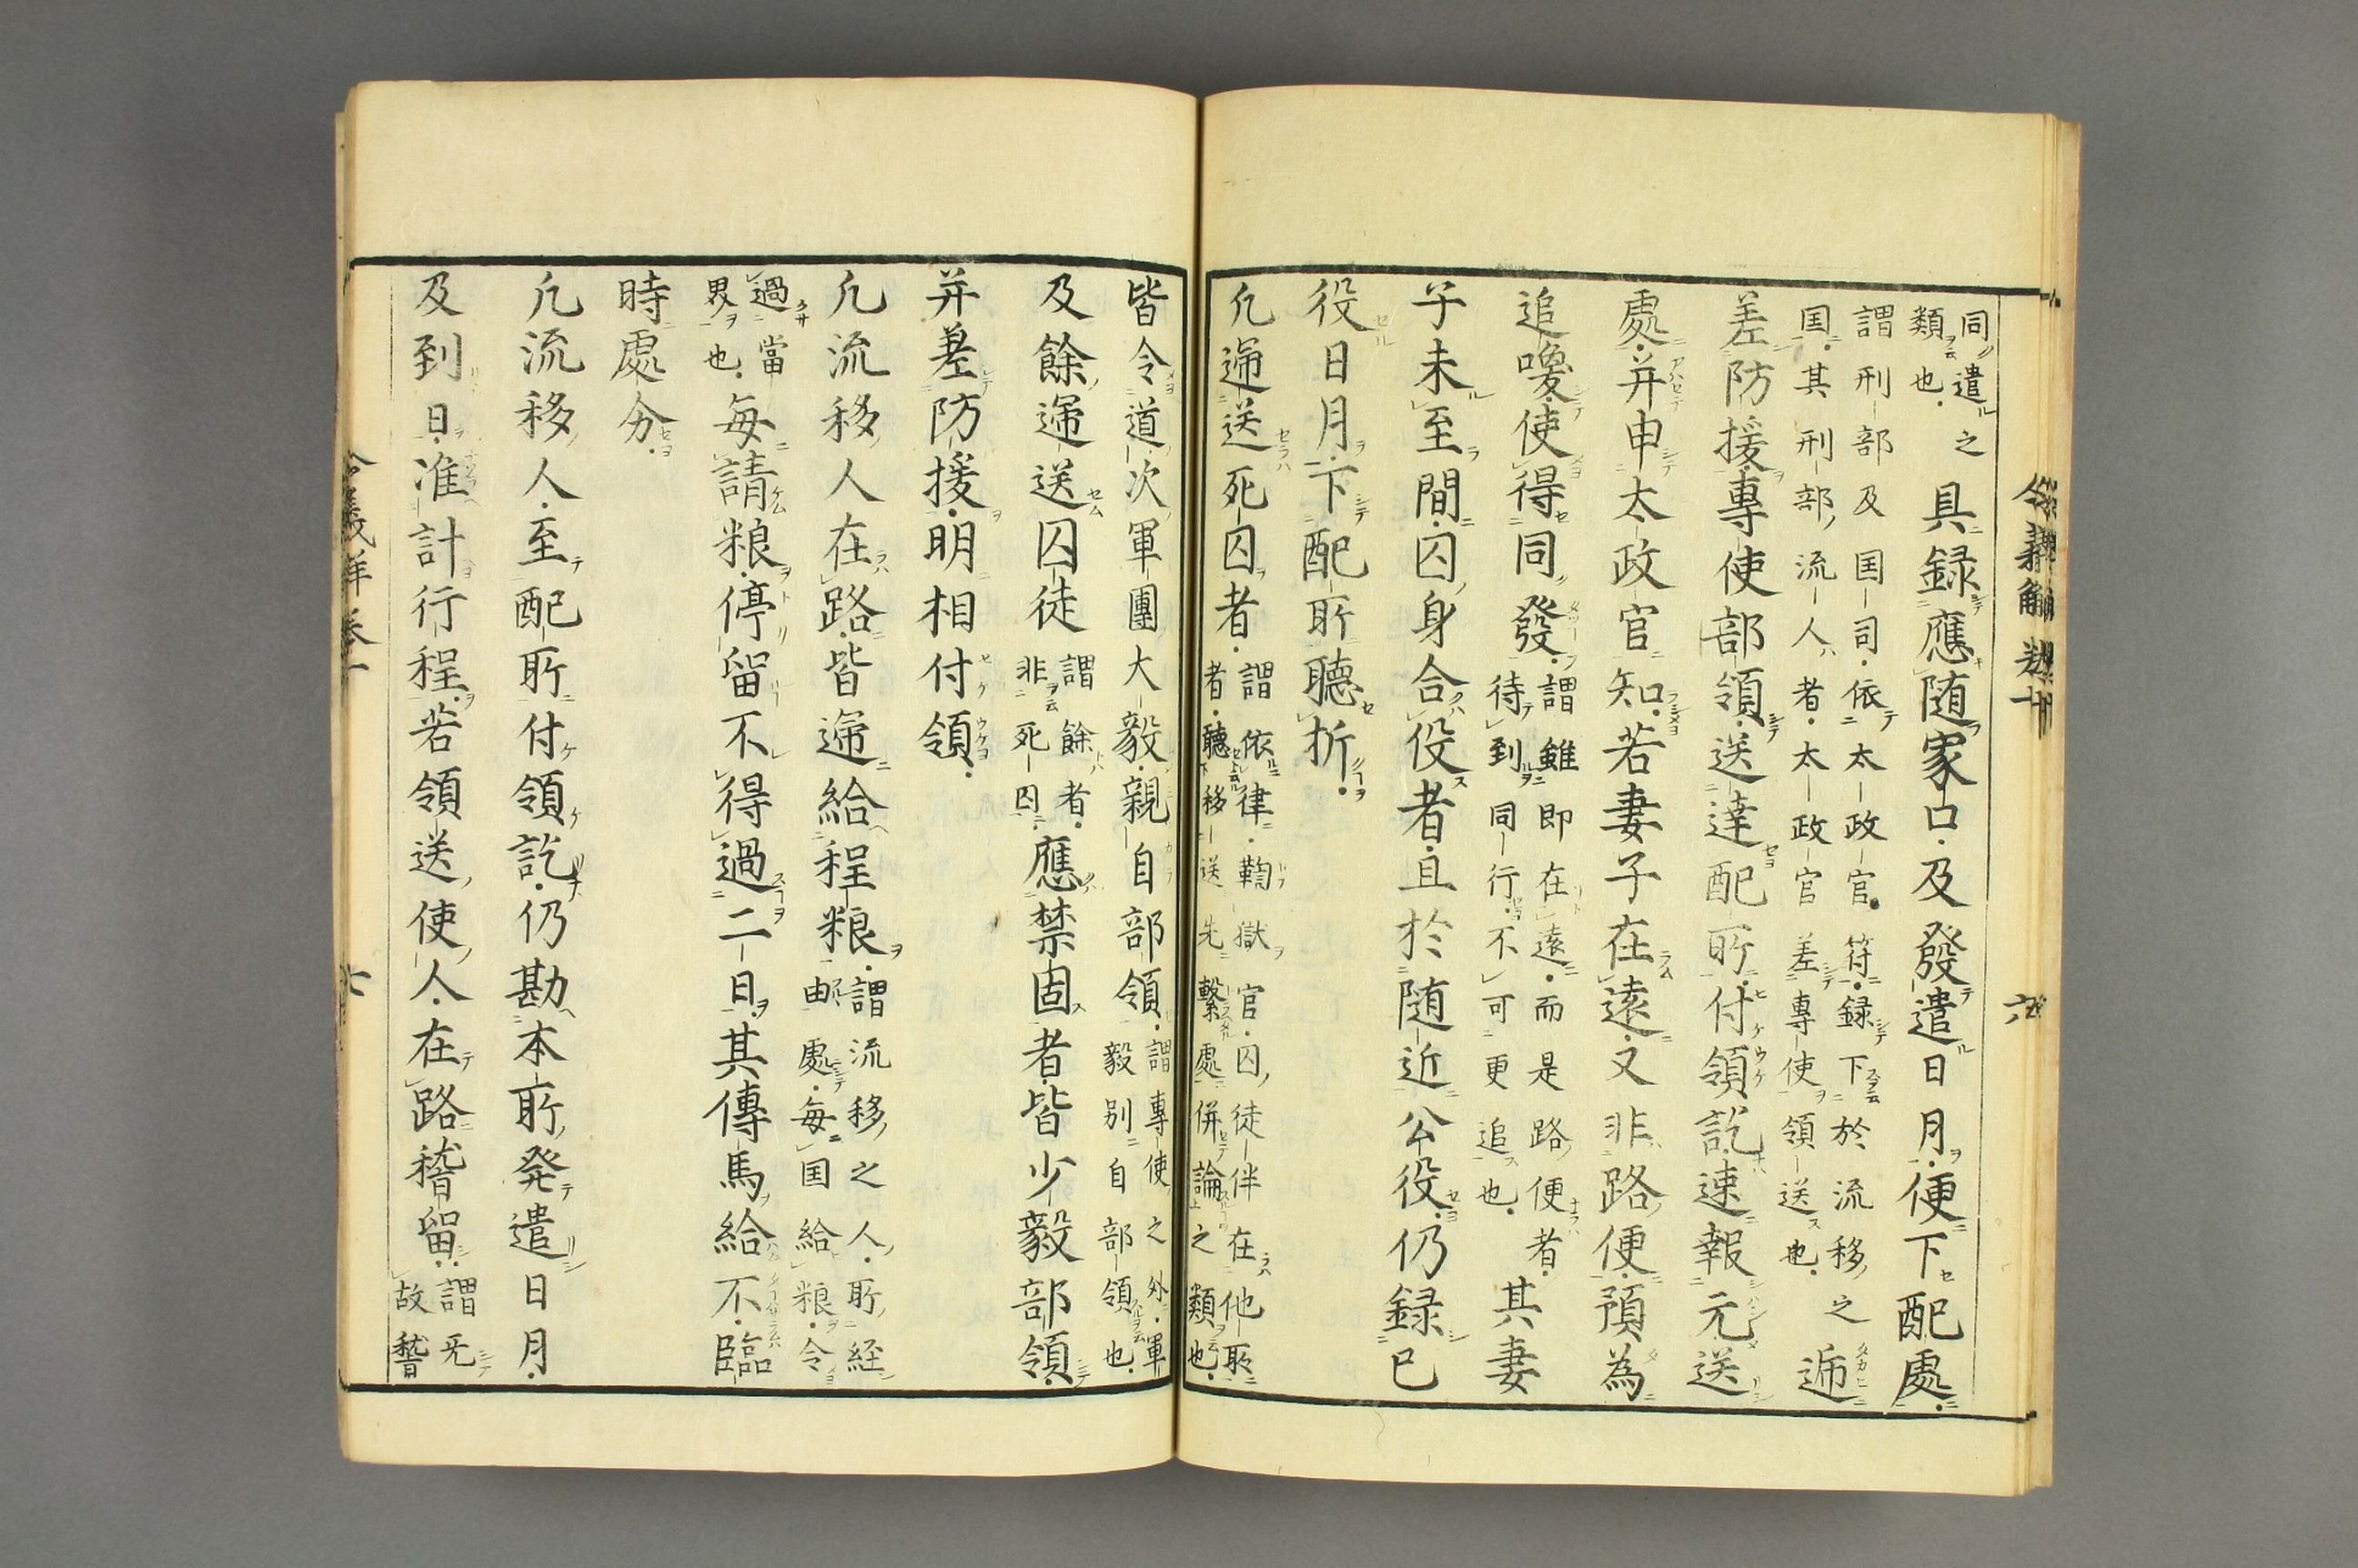 同遣之類也具録應随家口及發遣日月便下配處
謂刑部及囯司依太政官符録下於流移之囯其刑部流人者太政官差專使領送也逓
差防援專使部領送達配所付領訖速報元送
處并申太政官知若妻子在遠又非路便預為
追喚使得同發謂雖即在遠而是路便者待到同行不可更追也其妻
子未至間囚身合役者且於随近公役仍録已
役日月下配所聽折
凡逓送死囚者謂依律鞫獄官囚徒伴在他所者聽移送先繫處併論之類也
皆令道次軍團大毅親自部領謂專使之外軍毅別自部領也
及餘逓送囚徒謂餘者非死囚應禁固者皆少毅部領
并差防援明相付領
凡流移人在路皆逓給程粮謂流移之人所経由處毎囯給粮令
過當界也毎請粮停留不得過二日其傳馬給不臨
時處分
凡流移人至配所付領訖仍勘本所発遣日月
及到日准計行程若領送使人在路稽留謂无故稽
令義解 巻十
六